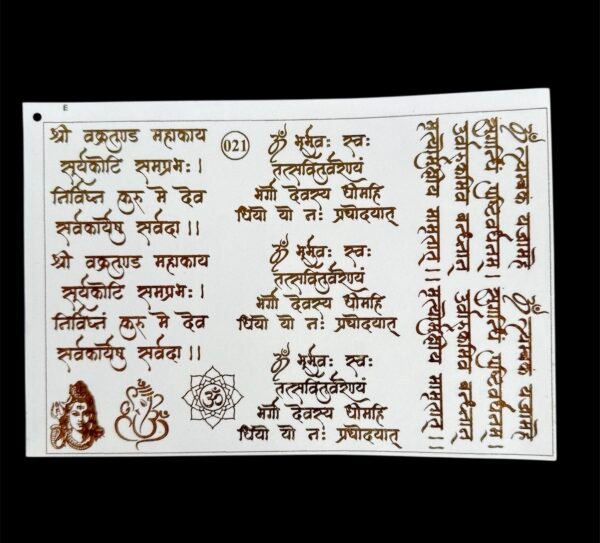 E
श्री वक्रतुण्ड महाकाय
सूर्यकोटि समप्रभः।
निर्विघ्नं कुरु मे देव
सर्वकार्येषु सर्वदा।।
श्री वक्रतुण्ड महाकाय
सूर्यकोटि समप्रभः।
निर्विघ्नं कुरु मे देव
सर्वकार्येषु सर्वदा।।
ॐ
021
ॐ भूर्भुवः स्वः
तत्सवितुर्वरेण्यं
भर्गो देवस्य धीमहि
धियो यो नः प्रचोदयात्
ॐ भूर्भुवः स्वः
तत्सवितुर्वरेण्यं
भर्गो देवस्य धीमहि
धियो यो नः प्रचोदयात्
ॐ भूर्भुवः स्वः
तत्सवितुर्वरेण्यं
भर्गो देवस्य धीमहि
धियो यो नः प्रचोदयात्
ॐ
ॐ त्र्यम्बकं यजामहे
सुगन्धिं पुष्टिवर्धनम्।
उर्वारुकमिव बन्धनान्
मृत्योर्मुक्षीय मामृतात्।।
ॐ त्र्यम्बकं यजामहे
सुगन्धिं पुष्टिवर्धनम्।
उर्वारुकमिव बन्धनान्
मृत्योर्मुक्षीय मामृतात्।।